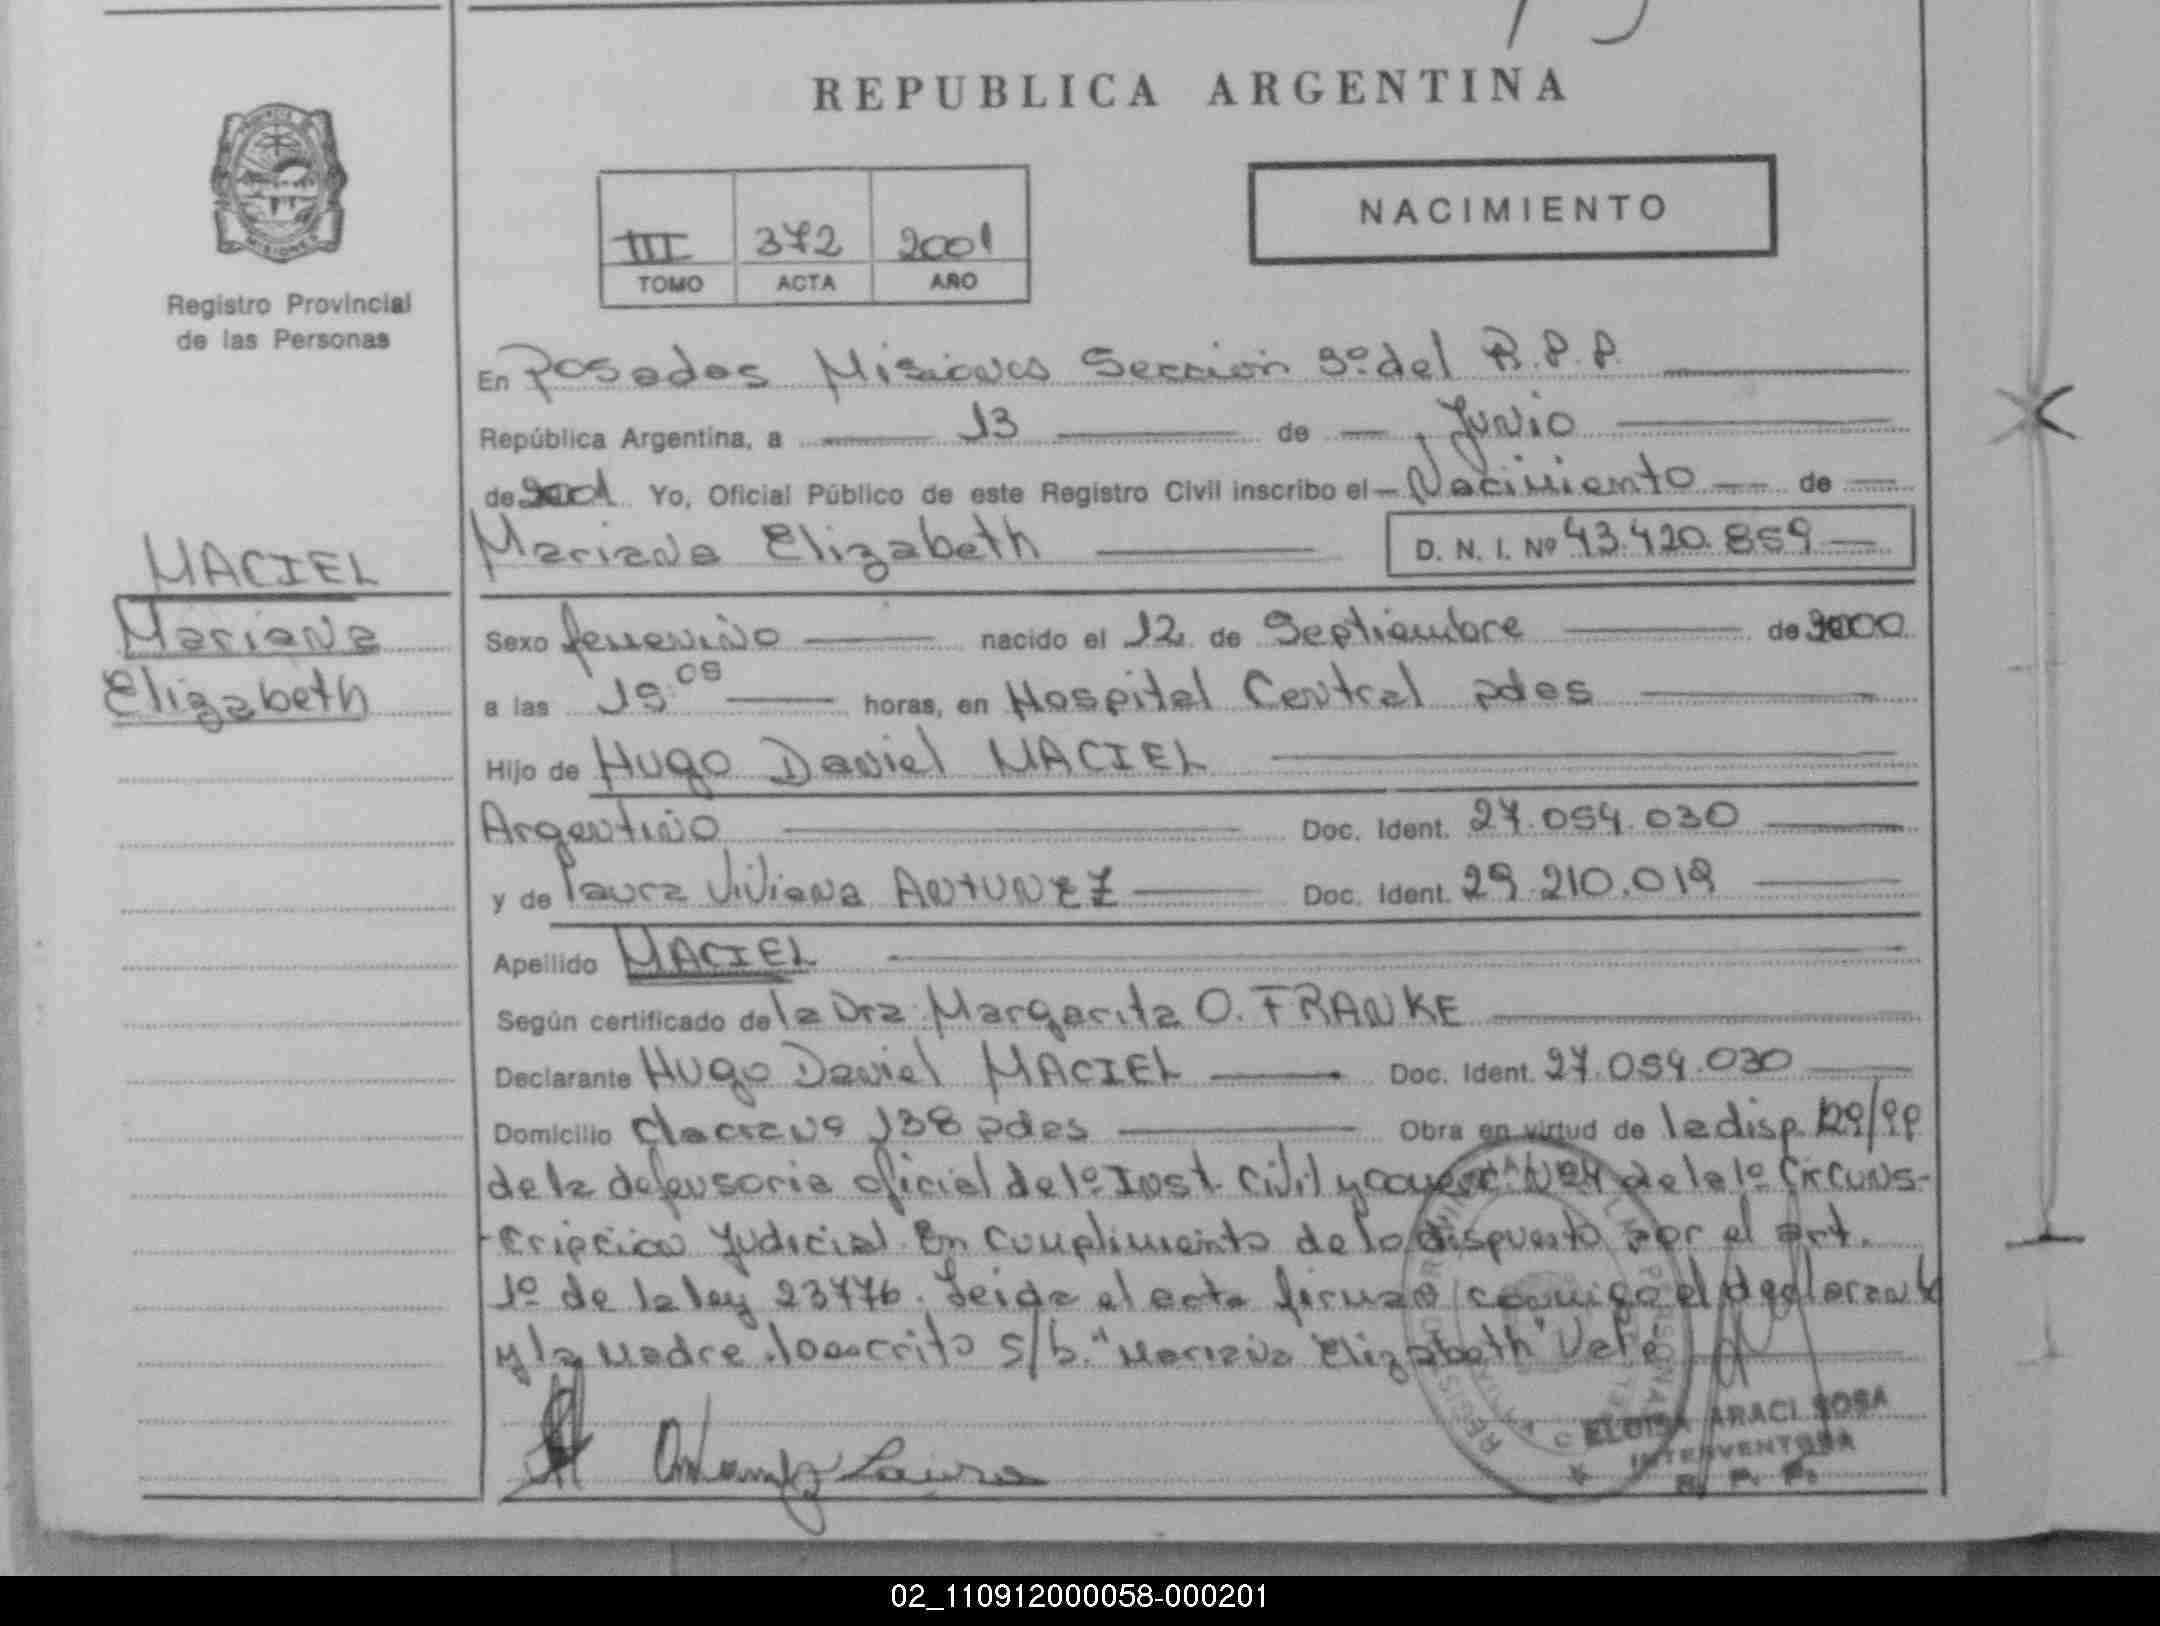 REPUBLICA ARGENTINA
NACIMIENTO
III 372 2001
TOMO ACTA AÑO
MISIONES
Registro Provincial
de las Personas
En Posadas Misiones Sección 3º del R.P.P.
República Argentina, a 13 de Junio
de 2001 Yo, Oficial Público de este Registro Civil inscribo el Nacimiento de
Mariana Elizabeth D. N. I. Nº 43.420.859
MACIEL
Mariana
Elizabeth
Sexo femenino nacido el 12 de Septiembre de 2000
a las horas, en Hospital Central pdas
Hijo de Hugo Daniel MACIEL
Argentino Doc. Ident. 27.054.030
y de Laura Viviana ANTUNEZ Doc. Ident. 29.210.019
Apellido MACIEL
Según certificado de la Dra. Margarita O. FRANKE
Declarante Hugo Daniel MACIEL Doc. Ident. 27.054.030
Domicilio 138 pdas Obra en virtud de la disp.
de la defensoria oficial de 1º Inst. Civil y de la 1º Circuns-
-cripcion Judicial. En cumplimiento de lo dispuesto por el art.
1º de la ley 23776. Leida el acta firman conmigo el declarante
y la madre. lo escrito s/b. "Mariana Elizabeth" Vale
Laura
ELOISA ARACI SOSA
INTERVENTORA
R. P. P.
02_110912000058-000201